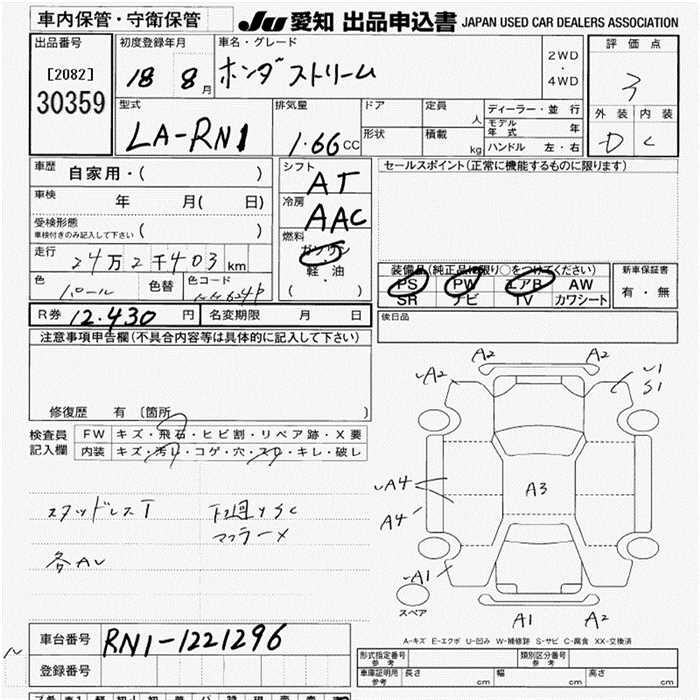 車内保管・守衛保管 JU 愛知 出品申込書 JAPAN USED CAR DEALERS ASSOCIATION
出品番号 初度登録年月 車名・グレード 評価点
[2082] 18 8月 ホンダ ストリーム 2WD・4WD 3
30359
型式 排気量 ドア 定員 人 ディーラー・並行 外装 内装
LA-RN1 1.66CC 形状 積載 kg モデル年式 年 D C
ハンドル 左・右
車歴 自家用・( ) シフト AT セールスポイント(正常に機能するものに限ります)
車検 年 月( 日) 冷房 AAC
受検形態 車検付きのみ記入して下さい ( ) 燃料 ガソリン
走行 24万2千403km 軽・油 装備品(純正品に限り○をつけてください) 新車保証書
色 パール 色替 色コード ( ) PS PW エアB AW 有・無
SR ナビ TV カワシート
R券 12.430円 名変期限 月 日 後日品
注意事項申告欄(不具合内容等は具体的に記入して下さい)
修復歴 有 〔箇所 〕
検査員記入欄 FW キズ・飛石・ヒビ割・リペア跡・X要
内装 キズ・汚レ・コゲ・穴・スレ・キレ・破レ
A2 A2
A2 U1
S1
A4 A3
A4
スタッドレスT 下廻りSC
マフラーメ
各AU
A1
スペア A1 A2
A-キズ E-エクボ U-凹み W-補修跡 S-サビ C-腐食 XX-交換済
車台番号 RN1-1221296
登録番号
形式指定番号 参考 類別区分番号 参考
車庫証明用 参考 長さ cm 幅 cm 高さ cm